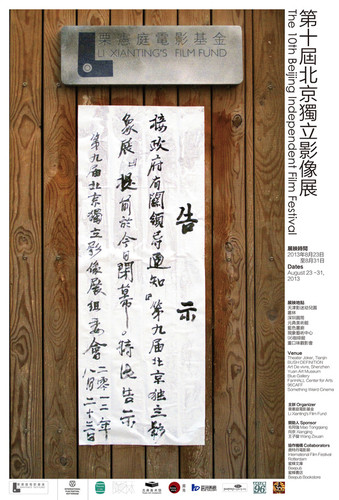 栗憲庭電影基金
LI XIANTING'S FILM FUND
第十屆北京獨立影像展
The 10th Beijing Independent Film Festival
告示
接政府有關領导通知《第九届北京独立影
象展》提前於今日閉幕。特此告示
第九届北京獨立影像展組委會
二〇一二年
八月二十三日
展映時間
2013年8月23日
至8月31日
Dates
August 23 -31,
2013
展映地點
Venue
BUSH DEFINITION
Yuan Art Museum
Blue Gallery
96CAFF
Something Weird Cinema
主辦 Organizer
栗憲庭電影基金
Li Xianting's Film Fund
贊助人 Sponsor
International Film Festival
Rotterdam